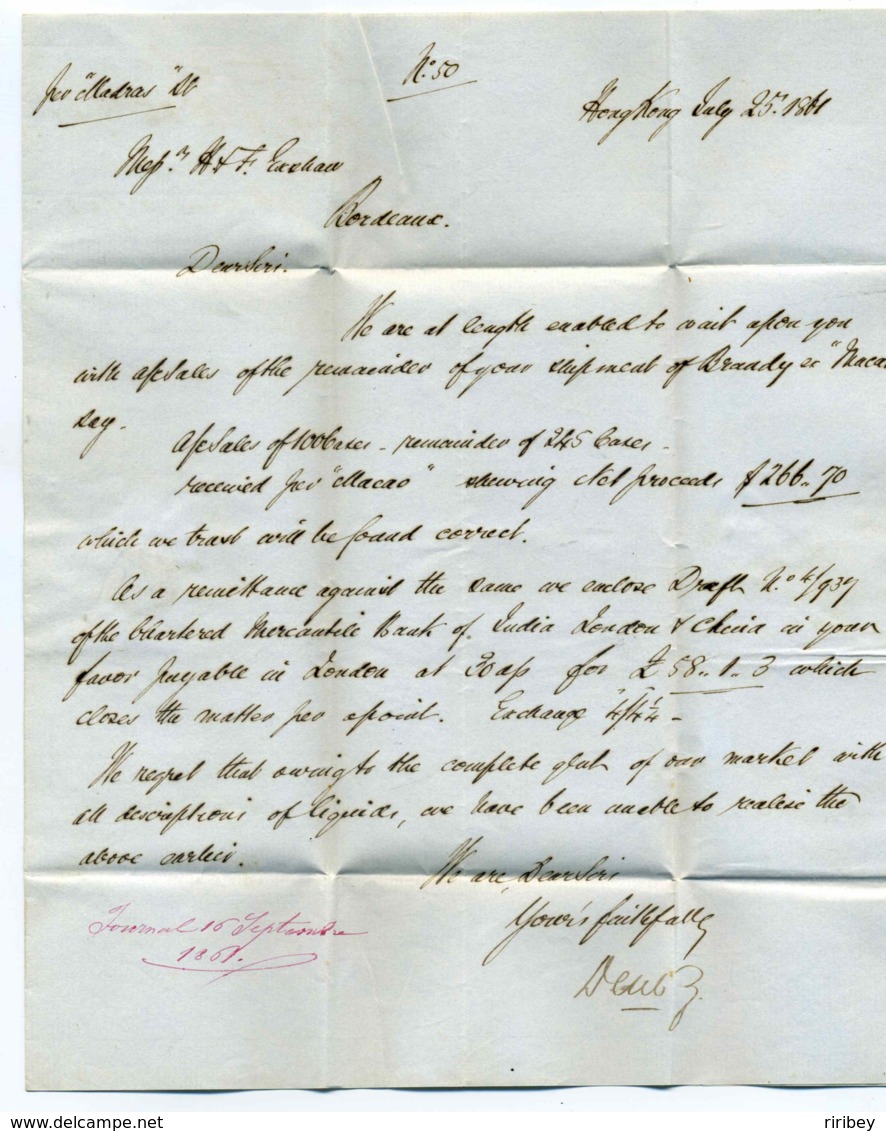 per "Madras"
No. 50
Hong Kong July 25th 1861
Messrs. H & F. Exshaw
Bordeaux.
Dear Sirs.
We are at length enabled to wait upon you
with a/c Sales of the remainder of your shipment of Brandy ex "Macao"
say.
A/c Sales of 100 Cases - remainder of 245 Cases -
received per "Macao" shewing Net proceeds $266.. 70
which we trust will be found correct.
As a remittance against the same we enclose Draft No. 4/939
of the Chartered Mercantile Bank of India London & China in your
favor payable in London at 30 d/s for £58.. 1.. 3 which
closes the matter per appoint. Exchange 4/4¼ -
We regret that owing to the complete glut of our market with
all descriptions of liquids, we have been unable to realise the
above earlier.
We are, Dear Sirs
Yours faithfully
Journal 16 Septembre
1861.
delcampe.net
riribey